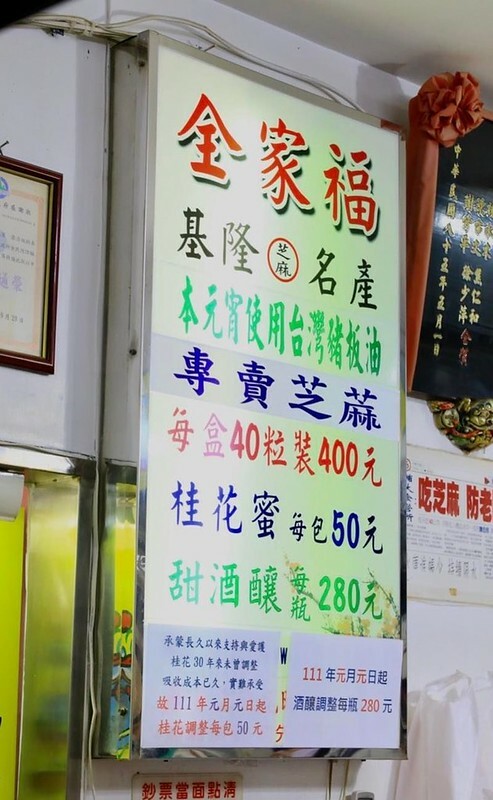 全家福
基隆芝麻名產
本元宵使用台灣豬板油
專賣芝蔴
每盒40粒裝400元
桂花蜜每包50元
甜酒釀每瓶280元
承蒙長久以來支持與愛護
桂花30年來未曾調整
吸收成本已久，實難承受
故111年元月元日起
桂花調整每包50元
111年元月元日起
酒釀調整每瓶280元
鈔票當面點清
中華民國八十五年五月一日
吃芝麻 防老